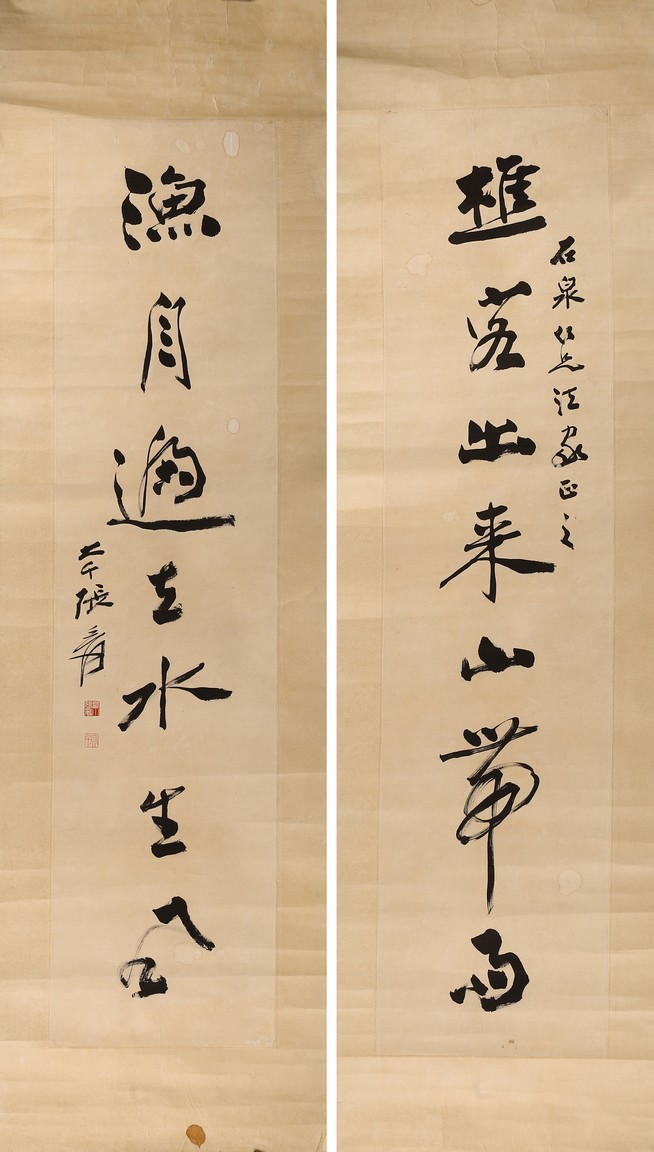 石泉仁兄法家正之
樵客出来山帶雨
漁舟過去水生風
大千張爰